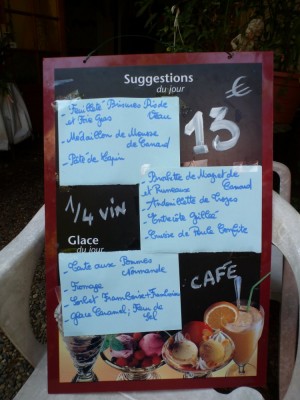 Suggestions
du jour
€
13
- Feuilleté Briennes Ris de
et Foie Gras Veau
- Médaillon de Mousse
de Canard
- Pâté de Lapin
- Brochette de Magret de
et Pruneaux Canard
- Andouillette de
- Entrecôte Grillée
- Cuisse de Poule Confite
1/4 VIN
Glace
du jour
- Tarte aux Pommes
Normande
- Fromage
- Sorbet Framboise +
- glace Caramel; Fleur de
Sel
CAFE